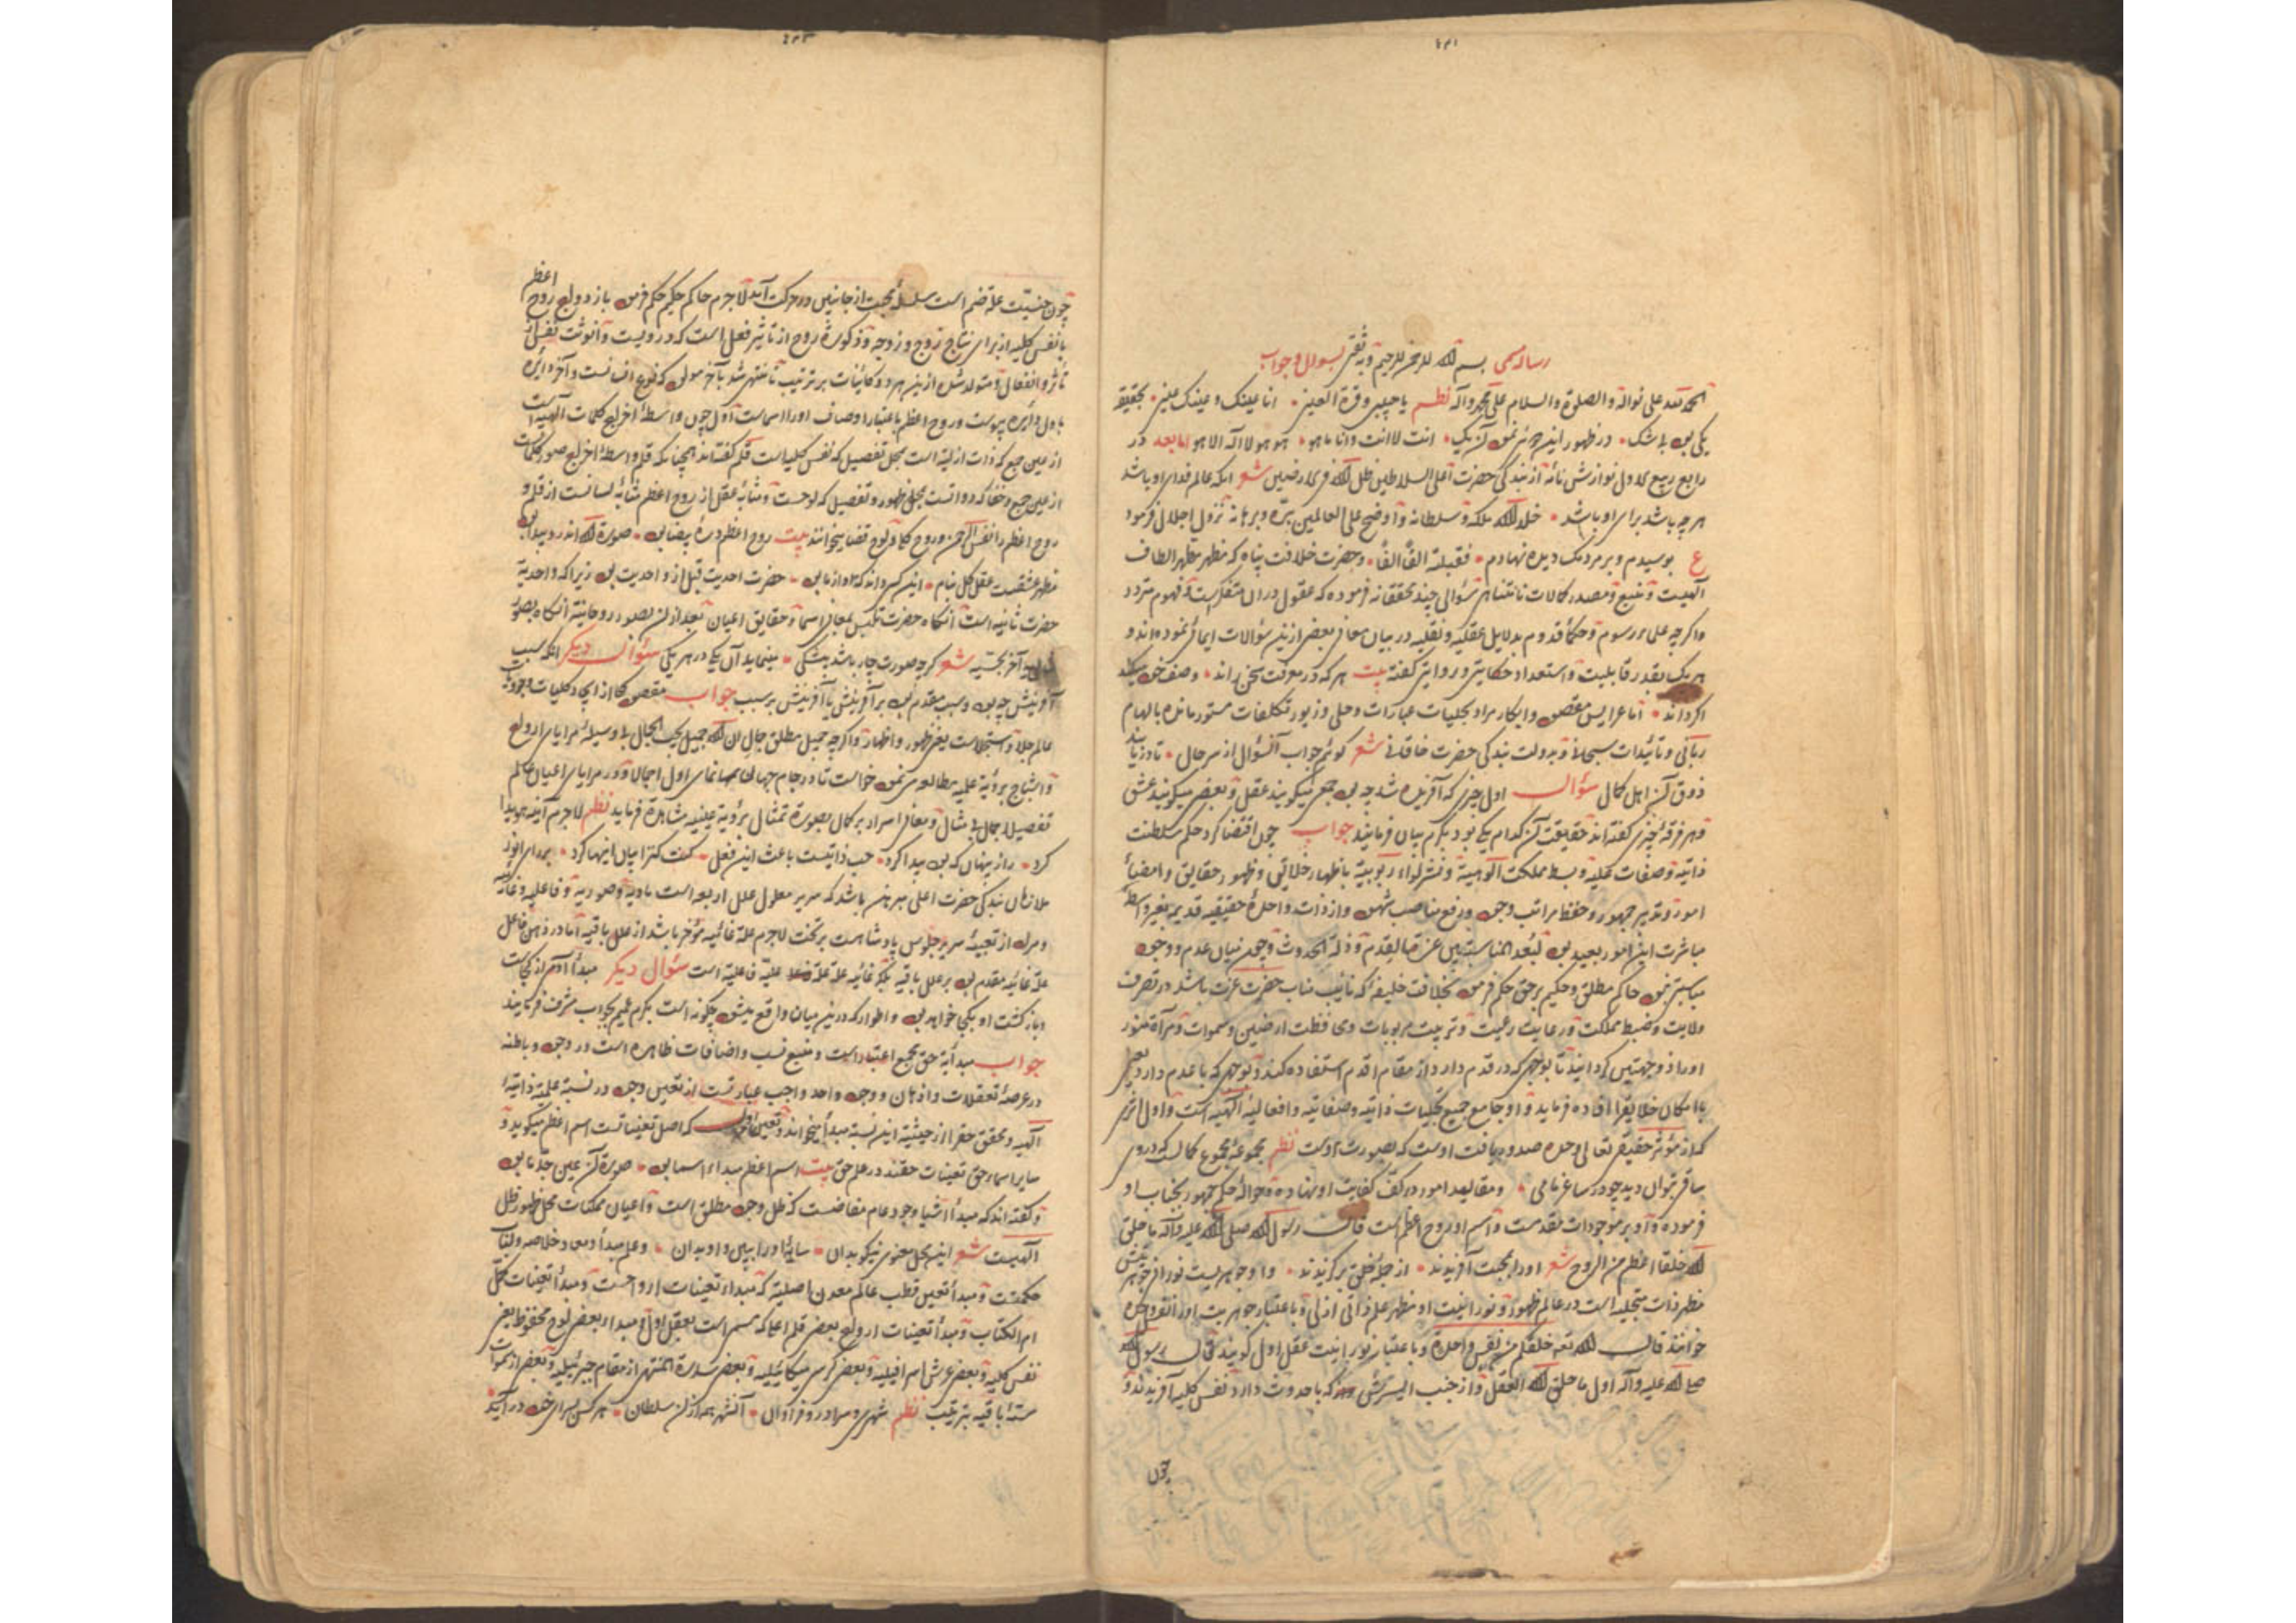 رساله مسمی بسم الله الرحمن الرحیم وبه ثقتی بسوال و جواب
الحمد لله علی نواله والصلوة والسلام علی محمد وآله نظم یا حبیبی وقرة العین انا عینک وعینک عینی بحقیقه
یکی بود بلا شک در ظهور این دوئی نمود آن یک انت لا انت وانا ما هو هو هو لا اله الا هو اما بعد در
رابع ربیع الاول نوازش نامه از بندگی حضرت اعلی السلاطین ظل الله فی الارضین شعر آنکه عالم فدای او باشد
هر چه باشد برای او باشد خلد الله ملکه وسلطانه واوضح علی العالمین بره وبرهانه نزول اجلال فرمود
ع بوسیدم و بر مردمک دیده نهادم فقبلته الفا الفا وحضرت خلافت پناه که مظهر مظهر الطاف
الهیت ومنبع ومصدر کمالات نامتناهی سؤالی چند محققانه فرموده که عقول در آن متفکر است وفهوم متردد
واگر چه علماء رسوم وحکماء قدوم بدلایل عقلیه ونقلیه در بیان معانی بعضی ازین سؤالات ایمائی نموده اند و
هر یک بقدر قابلیت واستعداد حکایتی وروایتی گفته بیت هر که در معرفت سخن راند وصف خود میکند
اگر داند اما عرایس مقصود وابکار مراد بجلیات عبارات وحلی وزیور تکلفات مستور مانده بالهام
ربانی وتائیدات سبحانی وبدولت بندگی حضرت خاقانی شعر گوئیم جواب آن سؤال از سر حال تا در یابند
ذوق آن اهل کمال سؤال اول چیزی که آفریده شد چه بود جمعی میگویند عقل وبعضی میگویند عشق
وهر فرقه چیزی گفته اند حقیقت آن کدام یکی بود بکرم بیان فرمایند جواب چون اقتضا کرد حکم سلطنت
ذاتیة وصفات علیه وبسط مملکت الوهیة ونشر لواء ربوبیة باظهار خلایق وظهور حقایق وامضاء
امور وتدبیر جمهور وحفظ مراتب وجود ورفع مناصب شهود واز ذات واحدة حقیقیه قدیمه بغیر واسطه
مباشرت این امور بعید بود لبعد المناسبة بین عزة القدم وذلة الحدوث وچون میان عدم ووجود
مباینتی نمود حاکم مطلق وحکیم بر حق حکم فرمود بخلافت خلیفه که نایب مناب حضرت عزت باشد در تصرف
ولایت وضبط مملکت ورعایت رعیت وتربیت مربوبات ومحافظت ارضین وسموات ومرآة منور
او را ذو وجهتین گردانید تا بوجهی که در قدم دارد از مقام اقدم استفاده کند وبوجهی که با عدم دارد یعنی
با امکان خلایق را افاده فرماید واو جامع جمیع تجلیات ذاتیه وصفاتیه وافعالیه الهیه است واول اثری
که از مؤثر حقیقی تعالی وحده صدور یافت اوست که بصورت اوست نظم مجموعه مجموع کمالست که در وی
ساقی بتوان دید چو در ساغر نامی ومقالید امور در کف کفایت او نهاده وحواله حکم جمهور بجناب او
فرموده واو بر موجودات مقدست واسم او روح اعظم است قال رسول الله صلی الله علیه وآله ما خلق
الله خلقا اعظم من الروح شعر او را بمحبت آفریدند از جمله خلق برگزیدند واو جوهریست نورانی جوهریتش
مظهر ذات متجلیه است در عالم ظهور ونورانیت او مظهر علم ذاتی ازلی وباعتبار جوهریت او را نفس واحده
خوانند قال الله تعه خلقکم من نفس واحدة وباعتبار نورانیت عقل اول گویند قال رسول الله
صلی الله علیه وآله اول ما خلق الله العقل واز جنب الیسرش که با حدوث دارد نفس کلیه آفریدند و
چون
چون جنسیت علة ضم است سلسله محبت از جانبین در حرکت آمد لاجرم حاکم حکیم حکم فرمود بازدواج روح اعظم
با نفس کلیه از برای نتاج زوج وزوجه وذکورة روح از تاثیر فعل است که در ویست وانوثت نفس از
تاثر وانفعال ومتولد شد ازین هر دو کاینات بر ترتیب تا منتهی شد بآخر مولود که نوع انسانست وآخر دایره
باول دایره پیوست وروح اعظم باعتبار اوصاف او را اسماست اول چون واسطه اخراج کلمات الهیه است
از عین جمع که ذات ازلیة است بمحل تفصیل که نفس کلیه است قلم گفته اند همچنانکه قلم واسطه اخراج صور کلمات
از عین جمع وخفا که دواتست بمحل ظهور وتفصیل که لوحست ومثابه عقل از روح اعظم مثابه لسانست از قلم و
روح اعظم را نفس الرحمن وروح کلی ولوح قضا میخوانند بیت روح اعظم درة بیضا بود صورة الله اندر و پیدا بود
مظهر عشقست عقل کل بنام این کسی داند که او از ما بود حضرت احدیت قبل از واحدیت بود زیرا که واحدیة
حضرت ثانیه است آنگاه حضرت تلبس بمعانی اسما وحقایق اعیان بعد از آن بصور روحانیة آنگاه بصور
آخر حسیه شعر گرچه صورت چار باشد بیشکی مینماید آن یکی در هر یکی سؤال دیگر آنکه سبب
آفرینش چه بود وسبب مقدم بود بر آفرینش یا آفرینش بر سبب جواب مقصود کلی از ایجاد کلیات وجود
عالم جلا واستجلاست یعنی ظهور واظهار واگر چه جمیل مطلق جمال ان الله جمیل یحب الجمال بلا وسیله مرایای ارواح
واشباح برؤیة علمیه مطالعه می نمود خواست تا در جام جهان نمای اول اجمالا ودر مرایای اعیان عالم
تفصیلا جمال بی مثال ومعانی اسرار بر کمال بصورة تمثال برؤیة عینیه مشاهده فرماید نظم لاجرم آینه هویدا
کرد راز پنهان که بود پیدا کرد حب ذاتیست باعث این فعل کنت کنزا بیان اینها کرد بر رای انور
ملازمان بندگی حضرت اعلی مبرهن باشد که سریر معلول علل اربعه است مادیه وصوریه وفاعلیه وغائیه
ومراد از تعبیه سریر جلوس پادشاهست بر تخت لاجرم علة غائیه مؤخر باشد از علل باقیه اما در ذهن فاعل
علة غائیه مقدم بود بر علل باقیه بلکه غائیه علة علیة فاعلیة است سؤال دیگر مبدأ آدم از کجاست
وبازگشت او بکجا خواهد بود واطوار که درین میان واقع میشود چگونه است بکرم عمیم بجواب مشرف فرمایند
جواب مبدأیة حق مجمع اعتبارات ومنبع نسب واضافات ظاهره است در وجود وباطنه
در عرصه تعقلات واذهان ووجود واحد واجب عبارتست از تعین وجود در نسبة علمیة ذاتیة
الهیه ومحقق حق را از حیثیة این نسبة مبدأ میخواند وتعین اول که اصل تعیناتست اسم اعظم میگوید و
سایر اسماء حق تعینات حقند در علم حق بیت اسم اعظم مبداء اسما بود صورة آن عین جد ما بود
وگفته اند که مبدأ اشیا وجود عام مفاضست که ظل وجود مطلق است واعیان ممکنات محل ظهور ظل
الهیست شعر این سخن معنوی نیکو بدان سایه او را ببین واو بدان وعلم مبدا ومعاد خلاصه ولباب
حکمتست ومبدأ تعین قطب عالم معدن اصلیة که مبداء تعینات ارواحست ومبدأ تعینات کل
ام الکتاب ومبدأ تعینات ارواح بعضی قلم اعلی که مسمی است بعقل اول ومبداء بعضی لوح محفوظ یعنی
نفس کلیه وبعضی عرش اسرافیلیه وبعضی کرسی میکائیلیه وبعضی سدرة المنتهی از مقام جبرئیلیه وبعضی از سموات
ستة باقیه بترتیب نظم شهری وسرا در و فراوان آن شهر همه از آن سلطان هر کس بسرای خود در آید